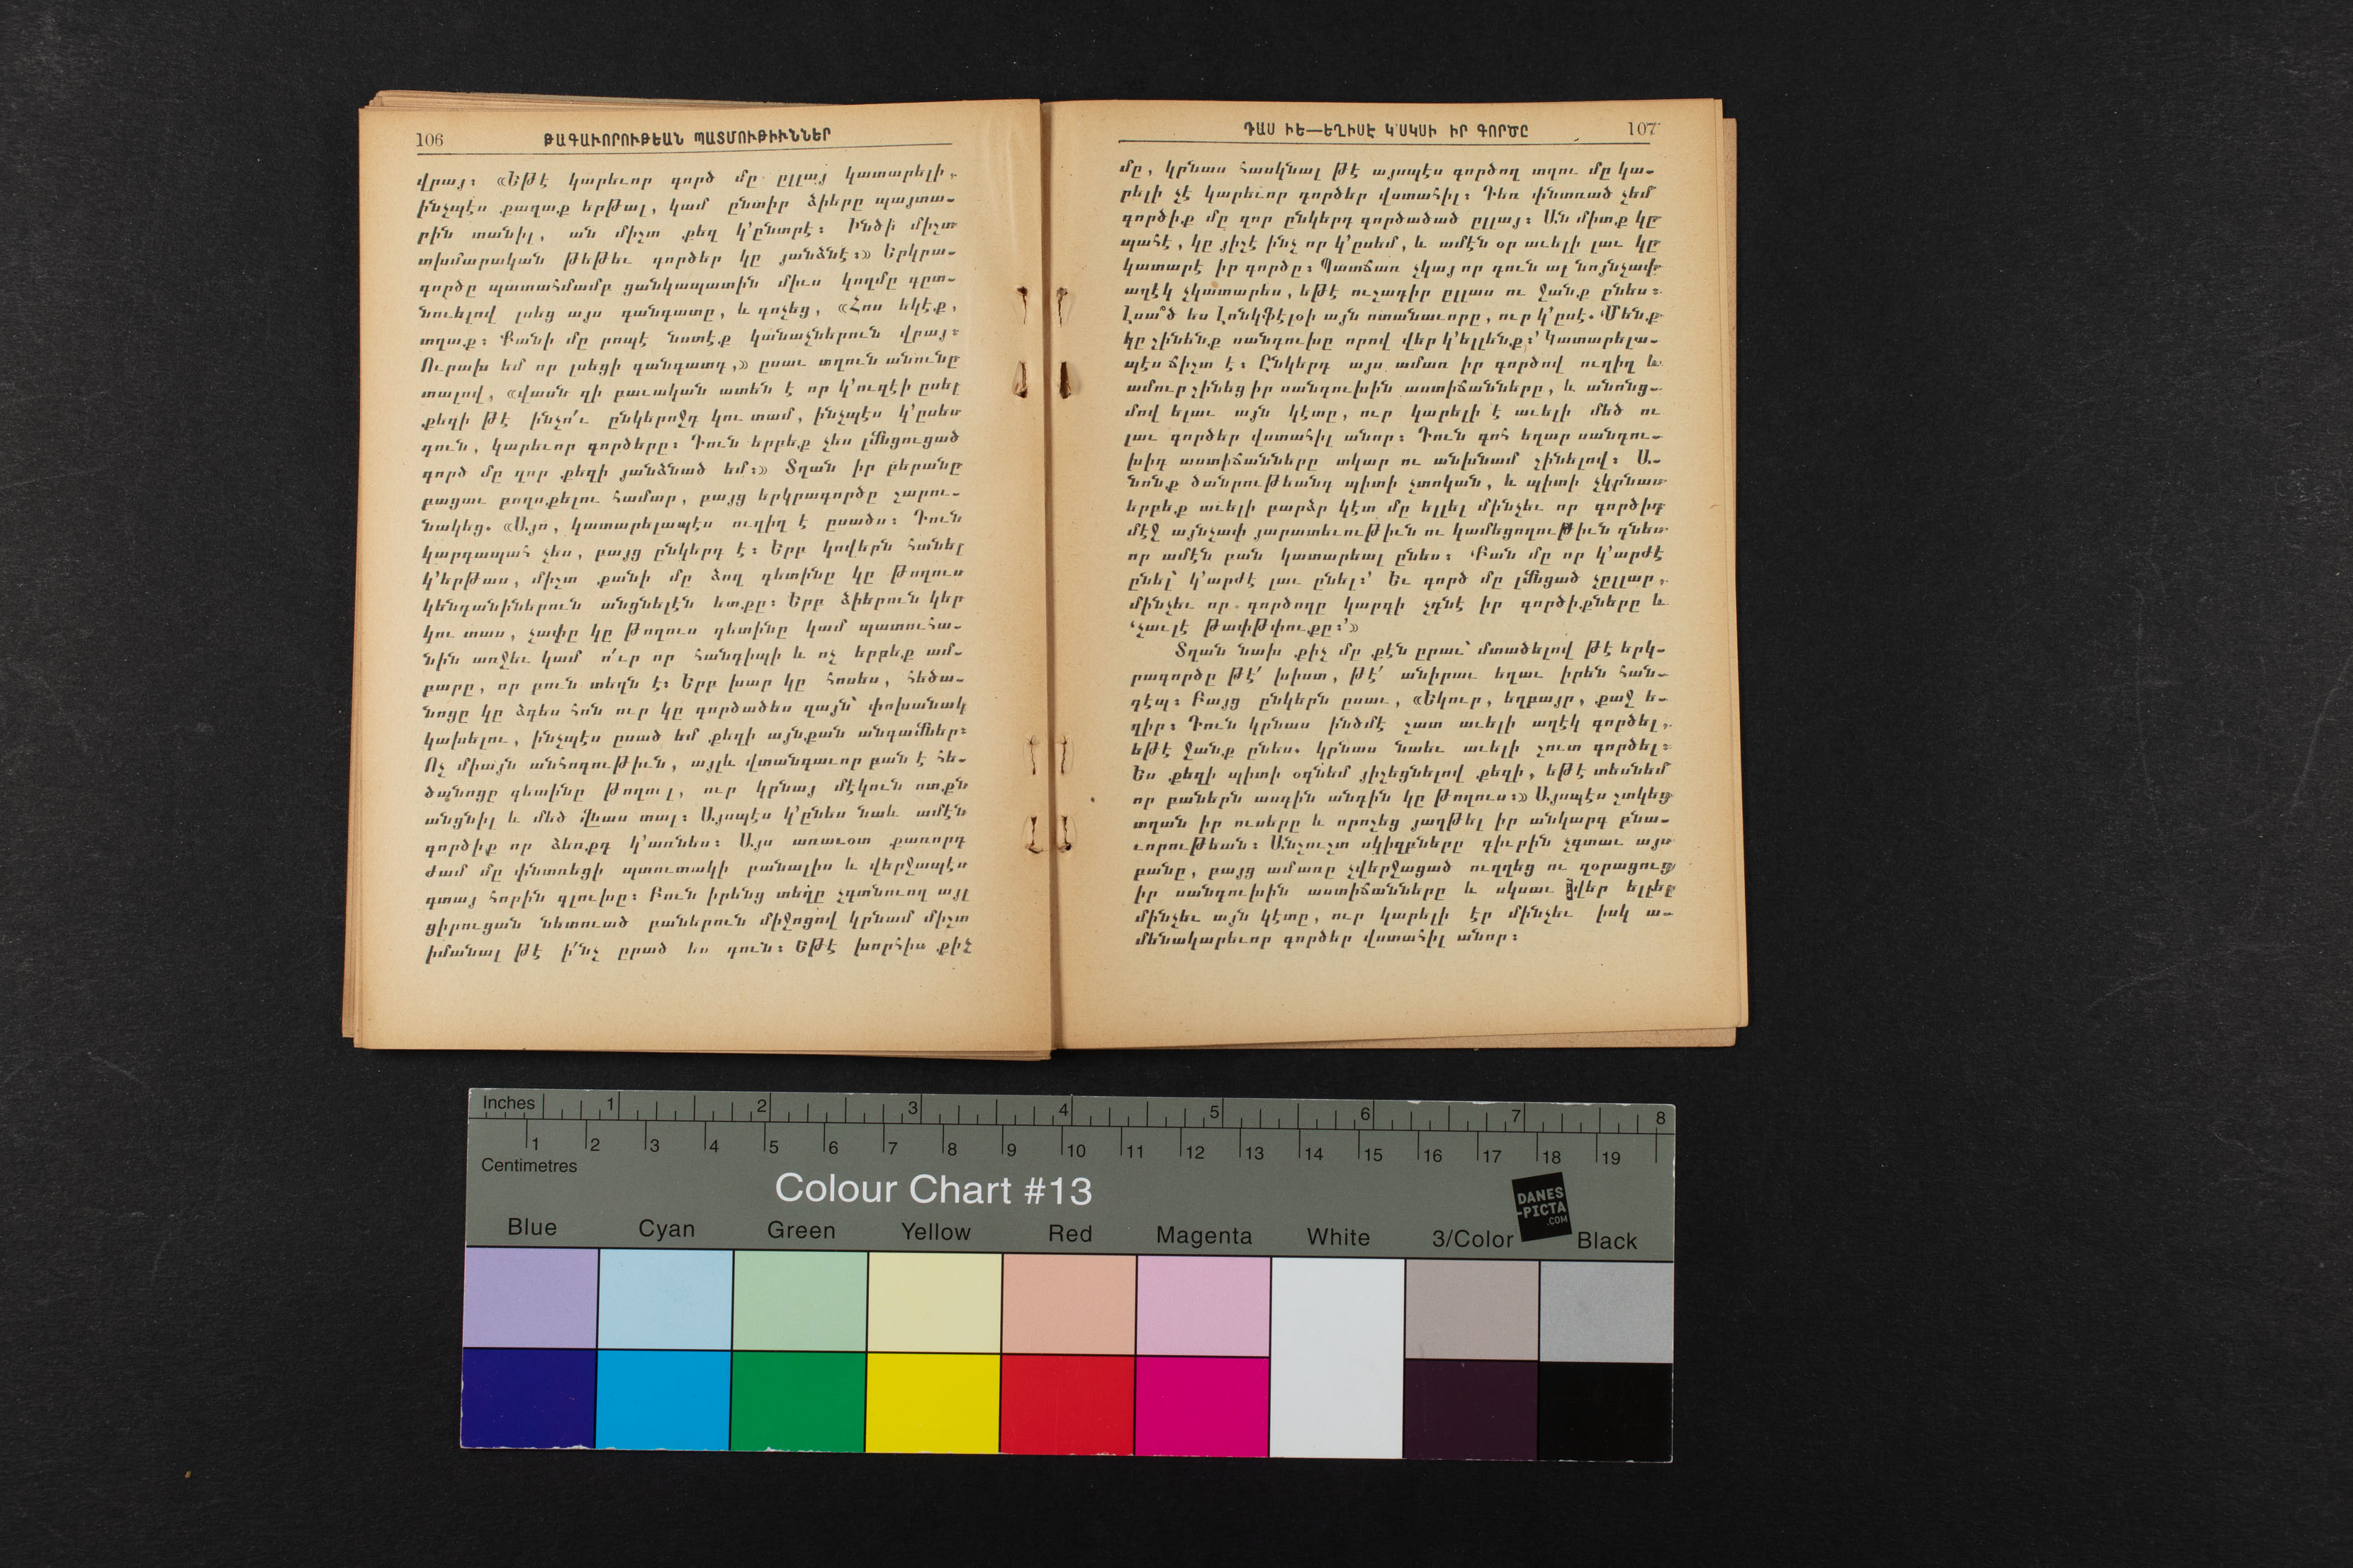 106 ԹԱԳԱՒՈՐՈՒԹԵԱՆ ՊԱՏՄՈՒԹԻՒՆՆԵՐ
վրայ։ «Եթէ կարեւոր գործ մը ըլլայ կատարելի,
ինչպէս քաղաք երթալ, կամ ընտիր ձիերը պայտա-
րին տանիլ, ան միշտ քեզ կ՚ընտրէ։ Ինծի միշտ
տխմարական թեթեւ գործեր կը յանձնէ։» Երկրա-
գործը պատահմամբ ցանկապատին միւս կողմը գըտ-
նուելով լսեց այս գանգատը, և գոչեց, «Հոս եկէք,
տղաք։ Քանի մը րոպէ նստէք կանաչներուն վրայ։
Ուրախ եմ որ լսեցի գանգատդ,» ըսաւ տղուն անունը
տալով, «վասն զի բաւական ատեն է որ կ՚ուզէի ըսել
քեզի թէ ինչո՛ւ ընկերոջդ կու տամ, ինչպէս կ՚ըսես
դուն, կարեւոր գործերը։ Դուն երբեք չես լմնցուցած
գործ մը զոր քեզի յանձնած եմ։» Տղան իր բերանը
բացաւ բողոքելու համար, բայց երկրագործը շարու-
նակեց. «Այո, կատարելապէս ուղիղ է ըսածս։ Դուն
կարգապահ չես, բայց ընկերդ է։ Երբ կովերն հանել
կ՚երթաս, միշտ քանի մը ձող գետինը կը թողուս
կենդանիներուն անցնելէն ետքը։ Երբ ձիերուն կեր
կու տաս, չափը կը թողուս գետինը կամ պատուհա-
նին առջեւ կամ ո՛ւր որ հանդիպի և ոչ երբեք ամ-
բարը, որ բուն տեղն է։ Երբ խար կը հոսես, հեծա-
նոցը կը ձգես հոն ուր կը գործածես զայն՝ փոխանակ
կախելու, ինչպէս ըսած եմ քեզի այնքան անգամներ։
Ոչ միայն անհոգութիւն, այլև վտանգաւոր բան է հե-
ծանոցը գետինը թողուլ, ուր կրնայ մէկուն ոտքն
անցնիլ և մեծ վնաս տալ։ Այսպէս կ՚ընես նաև ամէն
գործիք որ ձեռքդ կ՚առնես։ Այս առաւօտ քառորդ
ժամ մը փնտռեցի պտուտակի բանալիս և վերջապէս
գտայ հորին գլուխը։ Բուն իրենց տեղը չգտնուող այլ
ցիրուցան նետուած բաներուն միջոցով կրնամ միշտ
իմանալ թէ ի՛նչ ըրած ես դուն։ Եթէ խորհիս քիչ
ԴԱՍ ԻԵ—ԵՂԻՍԷ Կ՚ՍԿՍԻ ԻՐ ԳՈՐԾԸ 107
մը, կրնաս հասկնալ թէ այսպէս գործող տղու մը կա-
րելի չէ կարեւոր գործեր վստահիլ։ Դեռ փնտռած չեմ
գործիք մը զոր ընկերդ գործածած ըլլայ։ Ան միտք կը
պահէ, կը յիշէ ինչ որ կ՚ըսեմ, և ամէն օր աւելի լաւ կը
կատարէ իր գործը։ Պատճառ չկայ որ դուն ալ նոյնչափ
աղէկ չկատարես, եթէ ուշադիր ըլլաս ու ջանք ընես։
Լսա՞ծ ես Լոնկֆէլօի այն ոտանաւորը, ուր կ՚ըսէ. ‘Մենք
կը շինենք սանդուխը որով վեր կ՚ելլենք։’ Կատարելա-
պէս ճիշտ է։ Ընկերդ այս ամառ իր գործով ուղիղ և
ամուր շինեց իր սանդուխին աստիճանները, և անոնց-
մով ելաւ այն կէտը, ուր կարելի է աւելի մեծ ու
լաւ գործեր վստահիլ անոր։ Դուն գոհ եղար սանդու-
խիդ աստիճանները տկար ու անխնամ շինելով։ Ա-
նոնք ծանրութեանդ պիտի չտոկան, և պիտի չկրնաս
երբեք աւելի բարձր կէտ մը ելլել մինչեւ որ գործիդ
մէջ այնչափ յարատեւութիւն ու կամեցողութիւն դնես
որ ամէն բան կատարեալ ընես։ ‘Բան մը որ կ՚արժէ
ընել՝ կ՚արժէ լաւ ընել։’ Եւ գործ մը լմնցած չըլլար,
մինչեւ որ գործողը կարգի չդնէ իր գործիքները և
‘չաւլէ թափթփուքը։’»
Տղան նախ քիչ մը քէն ըրաւ՝ մտածելով թէ երկ-
րագործը թէ՛ խիստ, թէ՛ անիրաւ եղաւ իրեն հան-
դէպ։ Բայց ընկերն ըսաւ, «Եկուր, եղբայր, քաջ ե-
ղիր։ Դուն կրնաս ինձմէ շատ աւելի աղէկ գործել,
եթէ ջանք ընես. կրնաս նաեւ աւելի շուտ գործել։
Ես քեզի պիտի օգնեմ յիշեցնելով քեզի, եթէ տեսնեմ
որ բաներն ասդին անդին կը թողուս։» Այսպէս շտկեց
տղան իր ուսերը և որոշեց յաղթել իր անկարգ բնա-
ւորութեան։ Անշուշտ սկիզբները դիւրին չգտաւ այս
բանը, բայց ամառը չվերջացած ուղղեց ու զօրացուց
իր սանդուխին աստիճանները և սկսաւ վեր ելլել
մինչեւ այն կէտը, ուր կարելի էր մինչեւ իսկ ա-
մենակարեւոր գործեր վստահիլ անոր։
Inches 1 2 3 4 5 6 7 8
1 2 3 4 5 6 7 8 9 10 11 12 13 14 15 16 17 18 19
Centimetres
Colour Chart #13
DANES
-PICTA
.COM
Blue Cyan Green Yellow Red Magenta White 3/Color Black